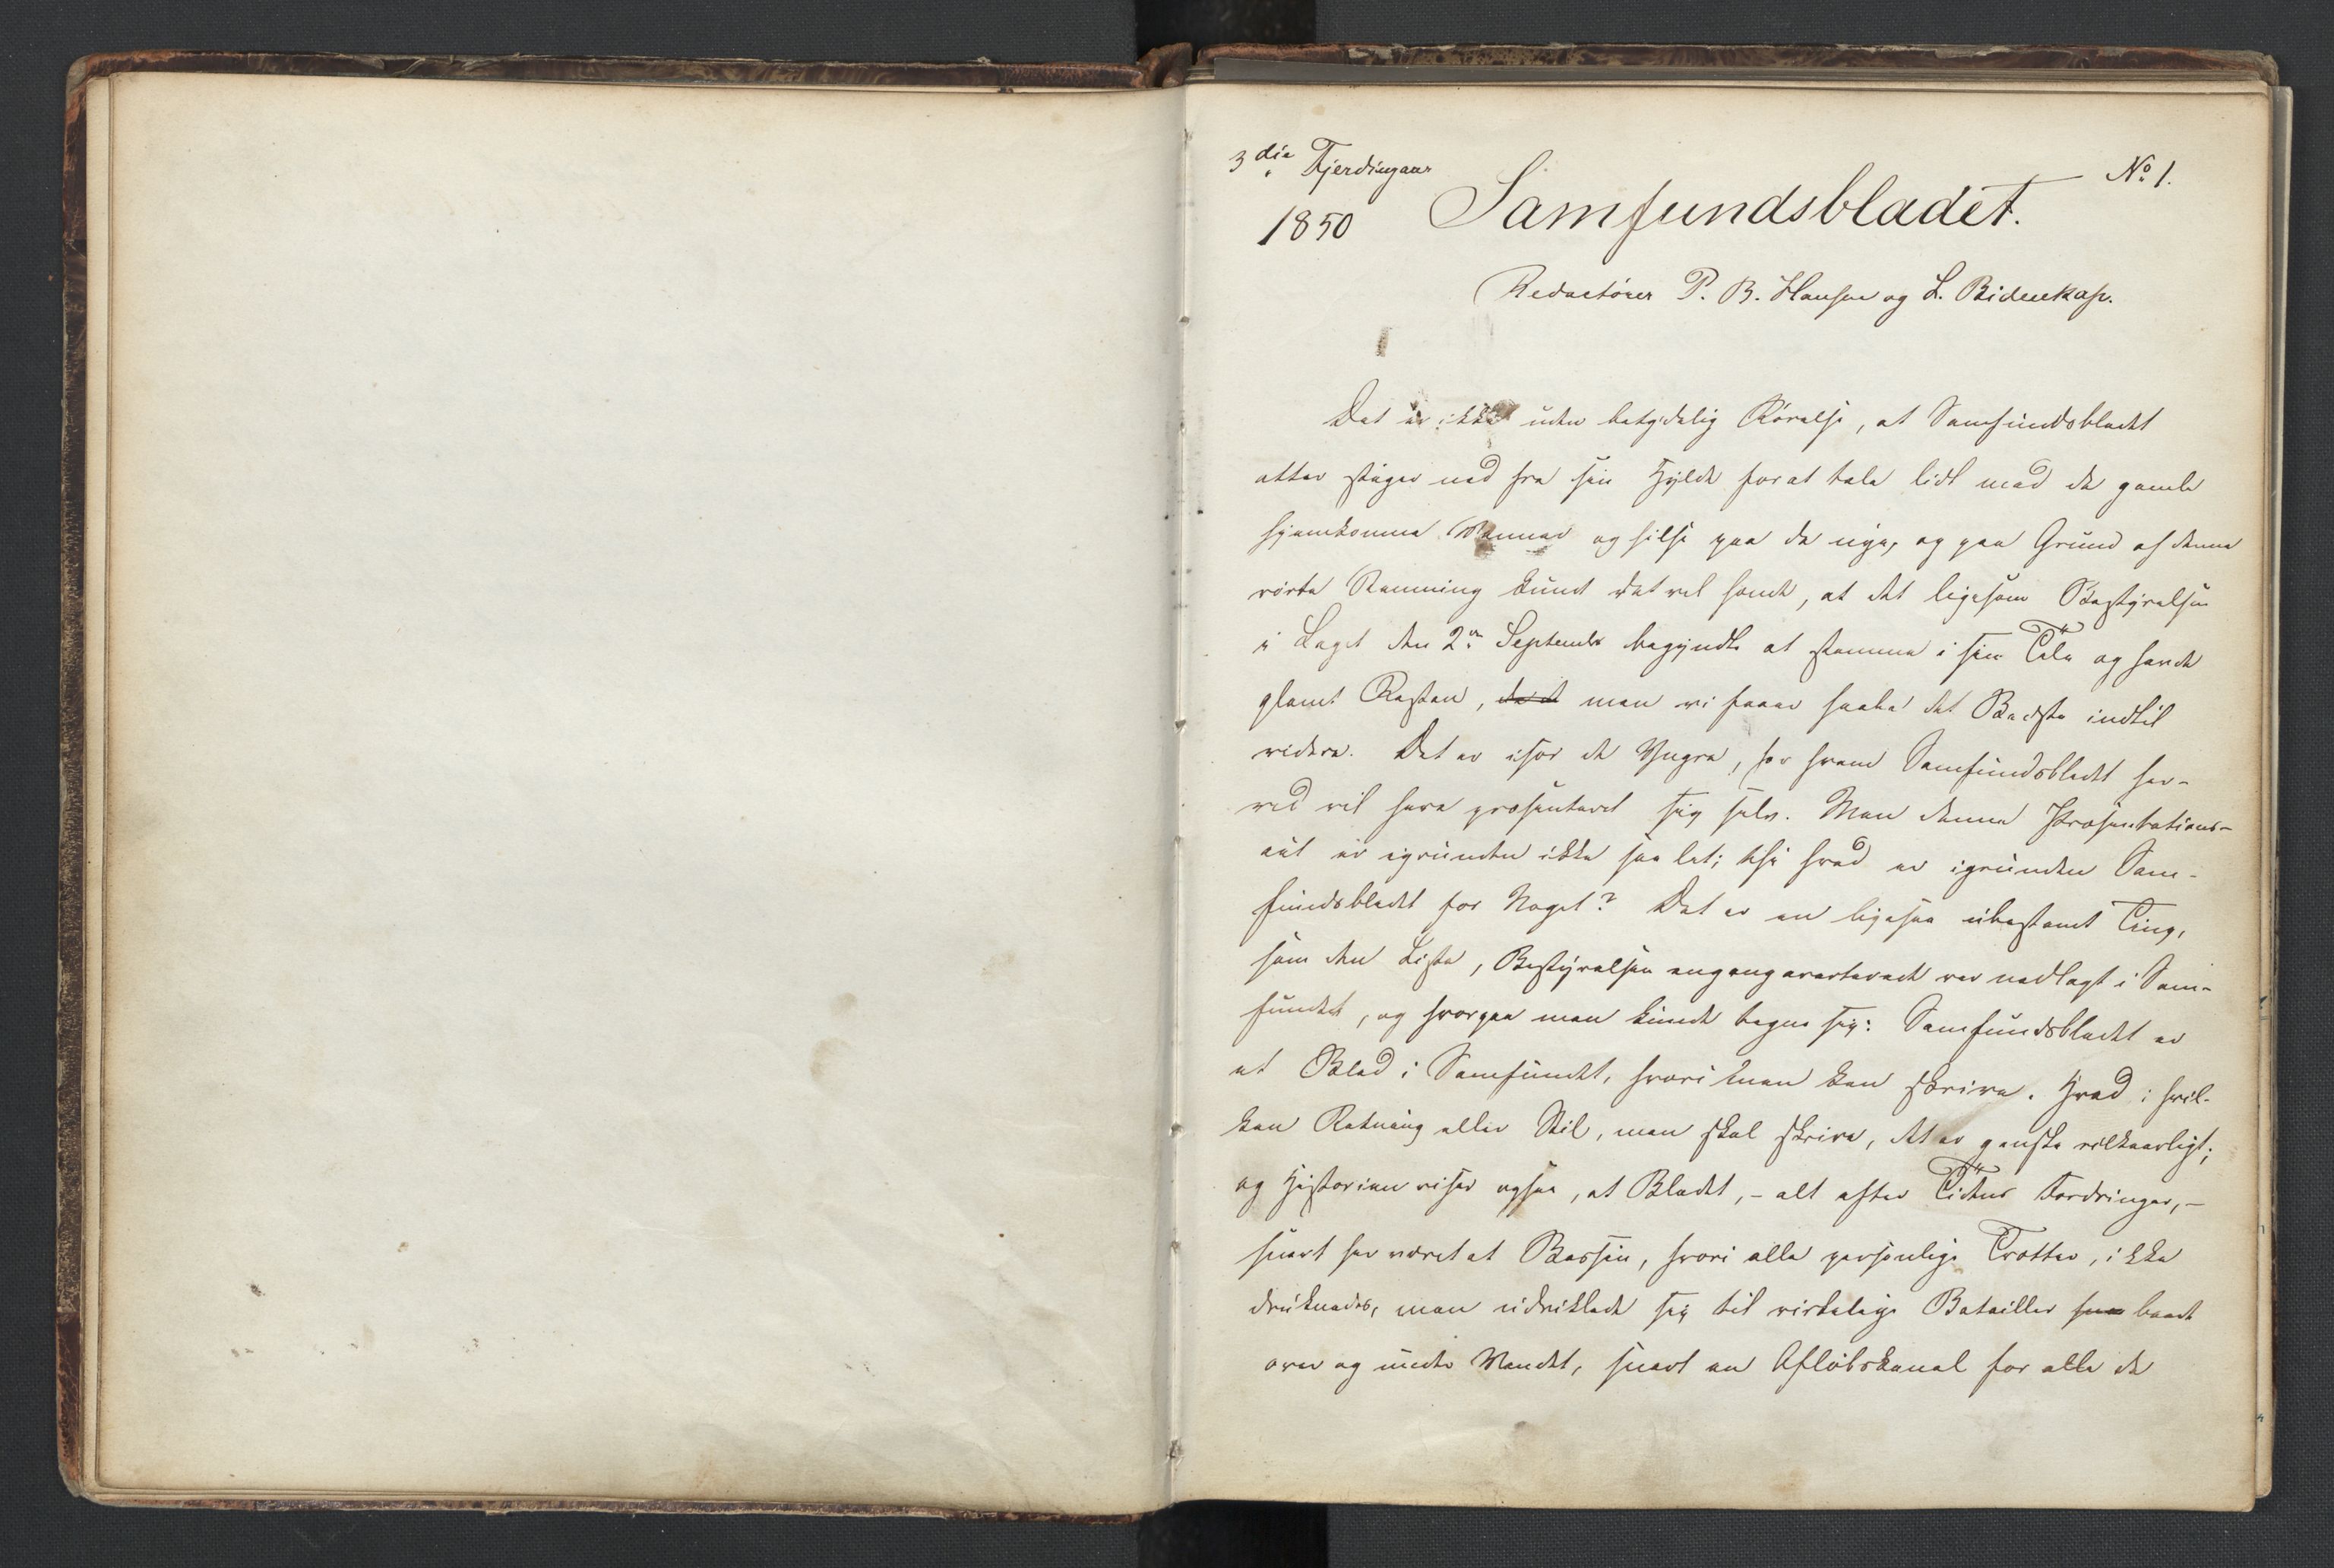 3die Fjerdingaar
No 1.
1850
Samfundsbladet.
Redactører P. B. Hansen og L. Bidenkap.
Det er ikke uden betydelig Rørelse, at Samfundsbladet
atter stiger ned fra sin Hylde for at tale lidt med de gamle
hjemkomne Venner og hilse paa de nye, og paa Grund af denne
rørte Stemning kunde det vel hænde, at det ligesom Bestyrelsen
i Laget den 2den Septembr begyndte at stamme i sin Tale og havde
glemt Resten, det men vi faaer haabe det Bedste indtil
videre. Det er især de Yngre, for hvem Samfundsbladet her-
ved vil have præsenteret sig selv. Men denne Præsentations-
act er igrunden ikke saa let; thi hvad er igrunden Sam-
fundsbladet for Noget? Det er en ligesaa ubestemt Ting,
som den Liste, Bestyrelsen engang averterede var nedlagt i Sam-
fundet, og hvorpaa man kunde tegne sig: Samfundsbladet er
et Blad i Samfundet, hvori man kan skrive. Hvad i hvil-
ken Retning eller Stil, man skal skrive, det er ganske vilkaarligt;
og Historien viser ogsaa, at Bladet, – alt efter Tidens Fordringer, –
snart har været et Bassin, hvori alle personlige Trætter, ikke
druknedes, men udviklede sig til virkelige Batailler baade
over og under Vandet, snart en Afløbskanal for alle de